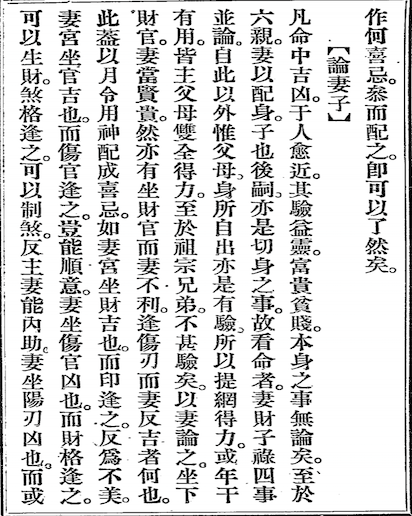 作何喜忌。叅而配之。卽可以了然矣。
【論妻子】
凡命中吉凶。于人愈近。其驗益靈。富貴貧賤。本身之事無論矣。至於
六親。妻以配身。子也後嗣。亦是切身之事。故看命者。妻財子祿四事
並論。自此以外。惟父母。身所自出。亦是有驗。所以提綱得力。或年干
有用。皆主父母雙全得力。至於祖宗兄弟。不甚驗矣。以妻論之。坐下
財官。妻當賢貴。然亦有坐財官而妻不利。逢傷刃而妻反吉者何也。
此蓋以月令用神配成喜忌。如妻宮坐財吉也。而印逢之。反爲不美。
妻宮坐官吉也。而傷官逢之。豈能順意。妻坐傷官凶也。而財格逢之。
可以生財。煞格逢之。可以制煞。反主妻能內助。妻坐陽刃凶也。而或